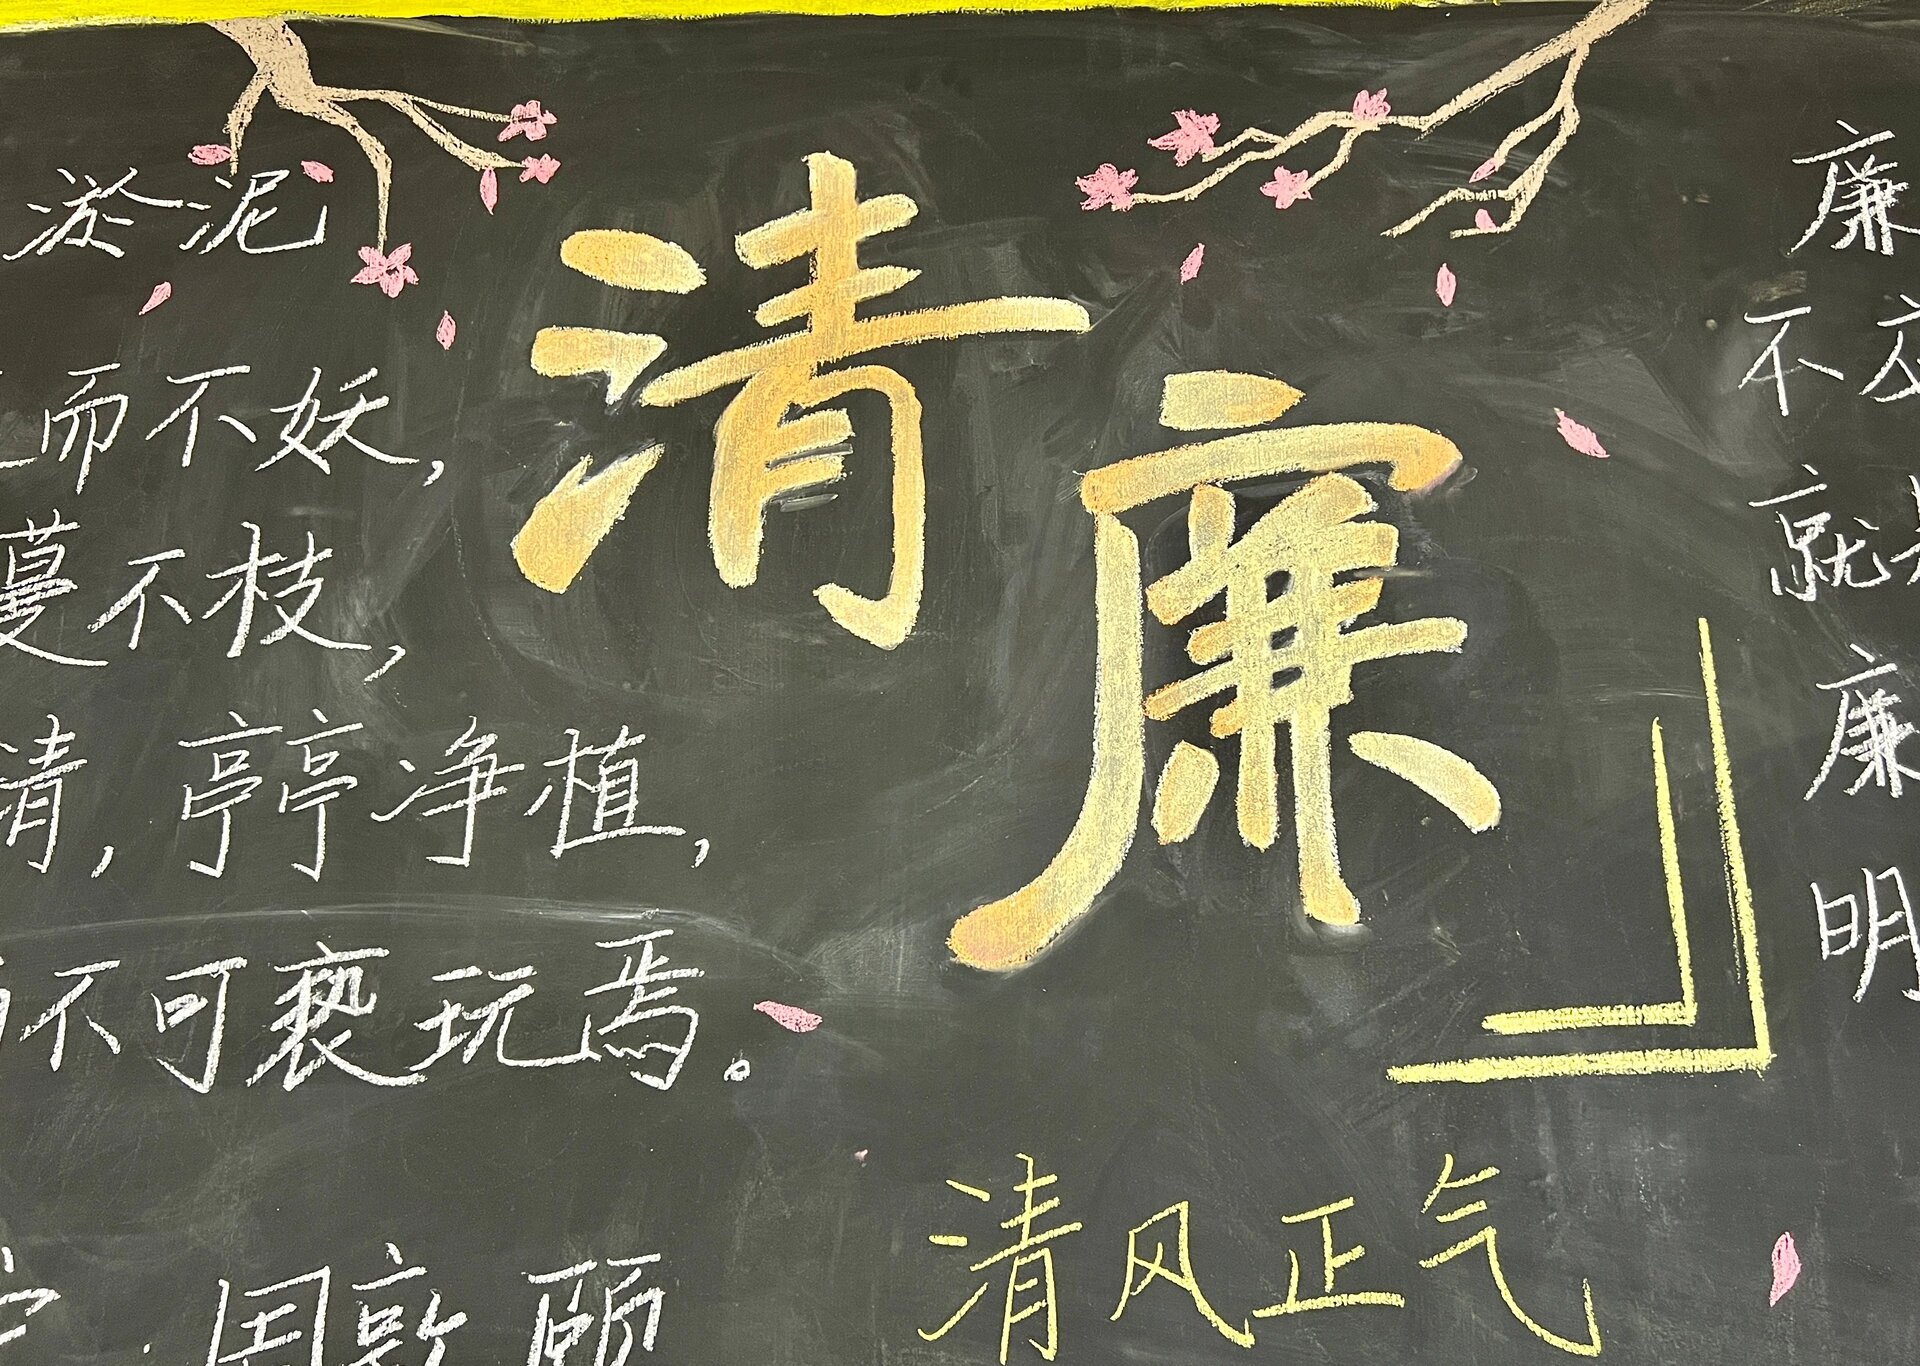 淤泥
而不妖，
蔓不枝，
清，亭亭净植，
不可亵玩焉。
周敦颐
清廉
清风正气
廉
不
就
廉
明